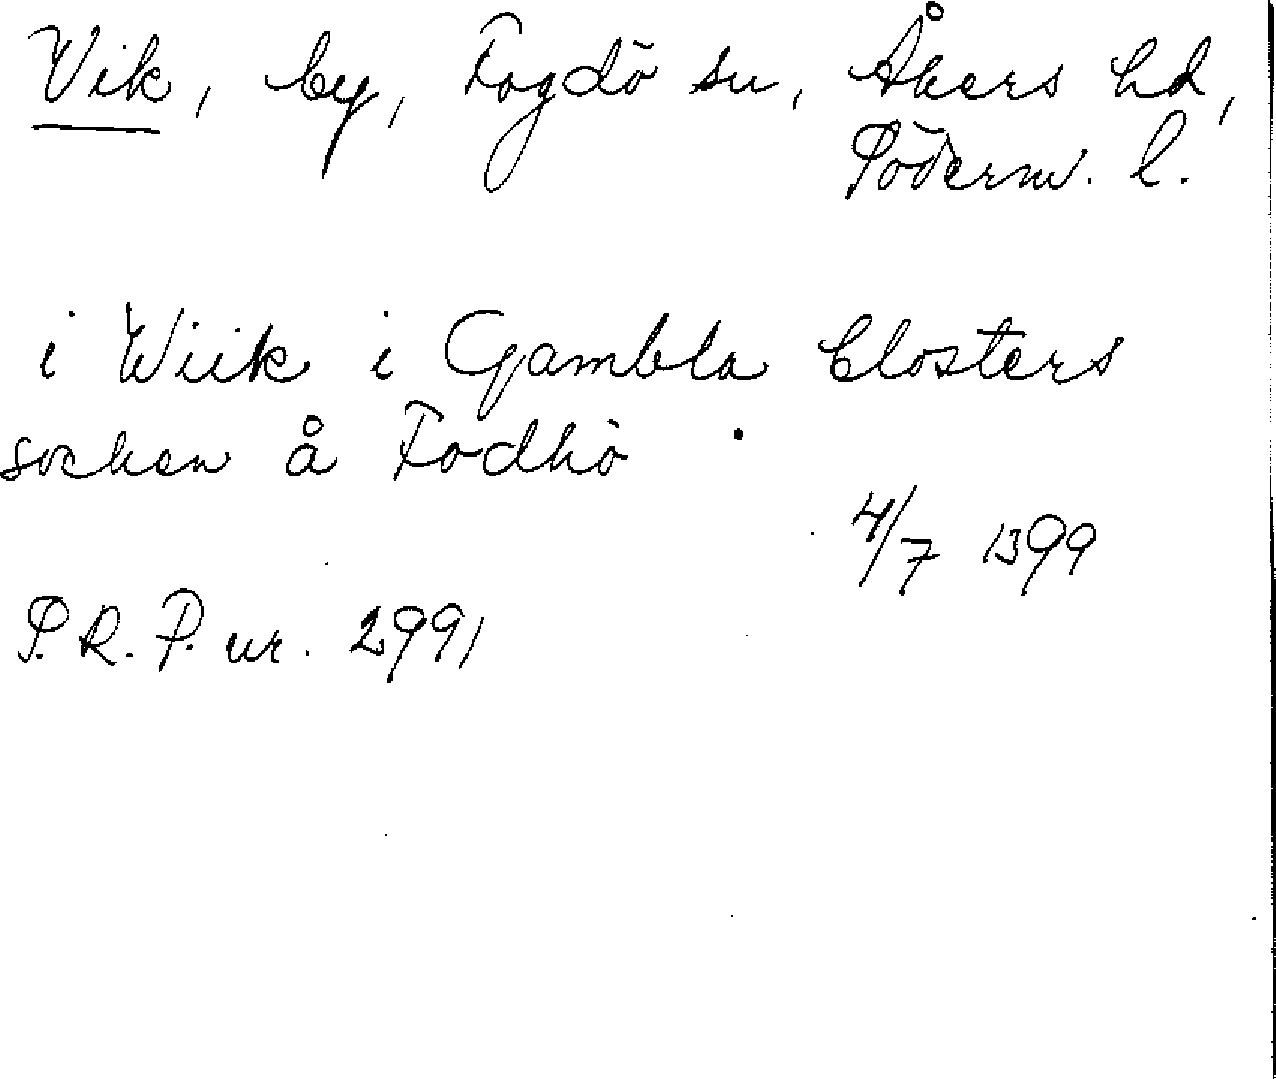 Vik, by, Fogdö sn, Åkers hd,
Söderm. l.
i Wiik i Gambla closters
socken å Fodhö
4/7 1399
S.R.P. nr. 2991